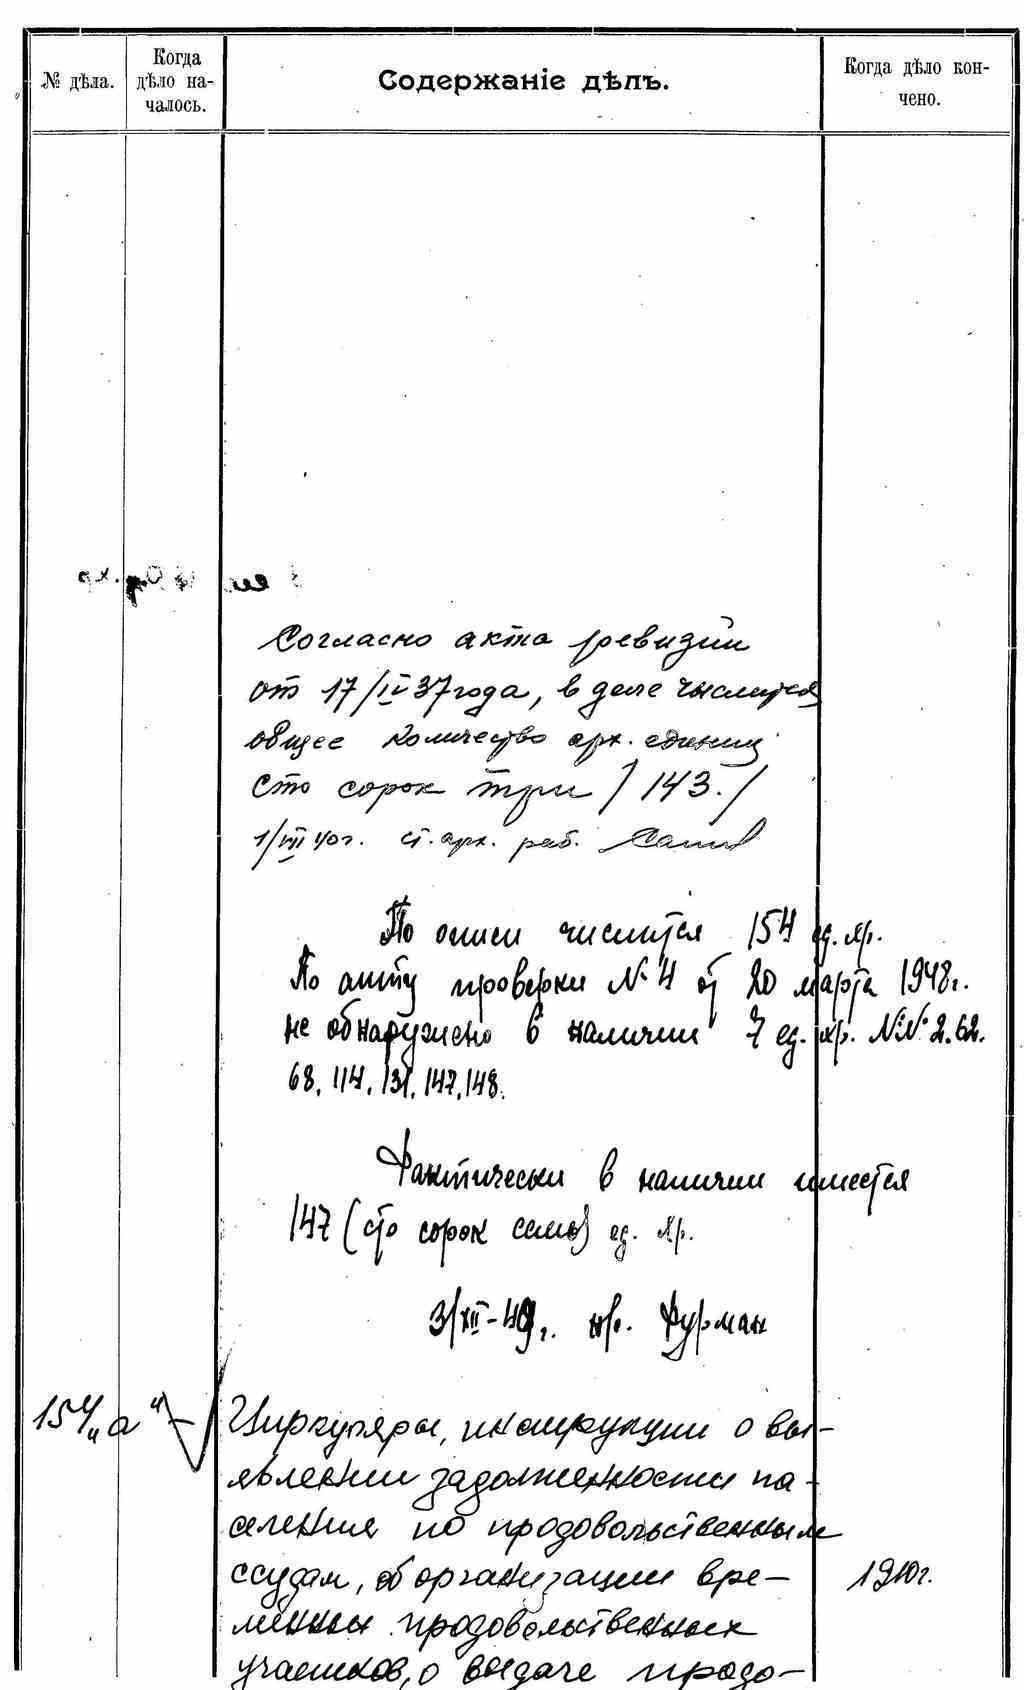 № дѣла.
Когда
дѣло на-
чалось.
Содержаніе дѣлъ.
Когда дѣло кон-
чено.
Согласно акта ревизии
от 17/IV 37 года, в деле числится
общее количество арх. единиц
сто сорок три / 143. /
1/VIII 40 г. ст. арх. раб.
По описи числится 154 ед. хр.
По акту проверки № 4 от 20 марта 1948 г.
не обнаружено в наличии 7 ед. хр. №№ 2. 62.
68. 114. 131. 147. 148.
Фактически в наличии имеется
147 (сто сорок семь) ед. хр.
3/XII-49 г. Фурман
154 „а" –
Циркуляры, инструкции о вы-
явлении задолженности на-
селения по продовольственным
ссудам, об организации вре-
менных продовольственных
1910 г.
участков, о выдаче продо-